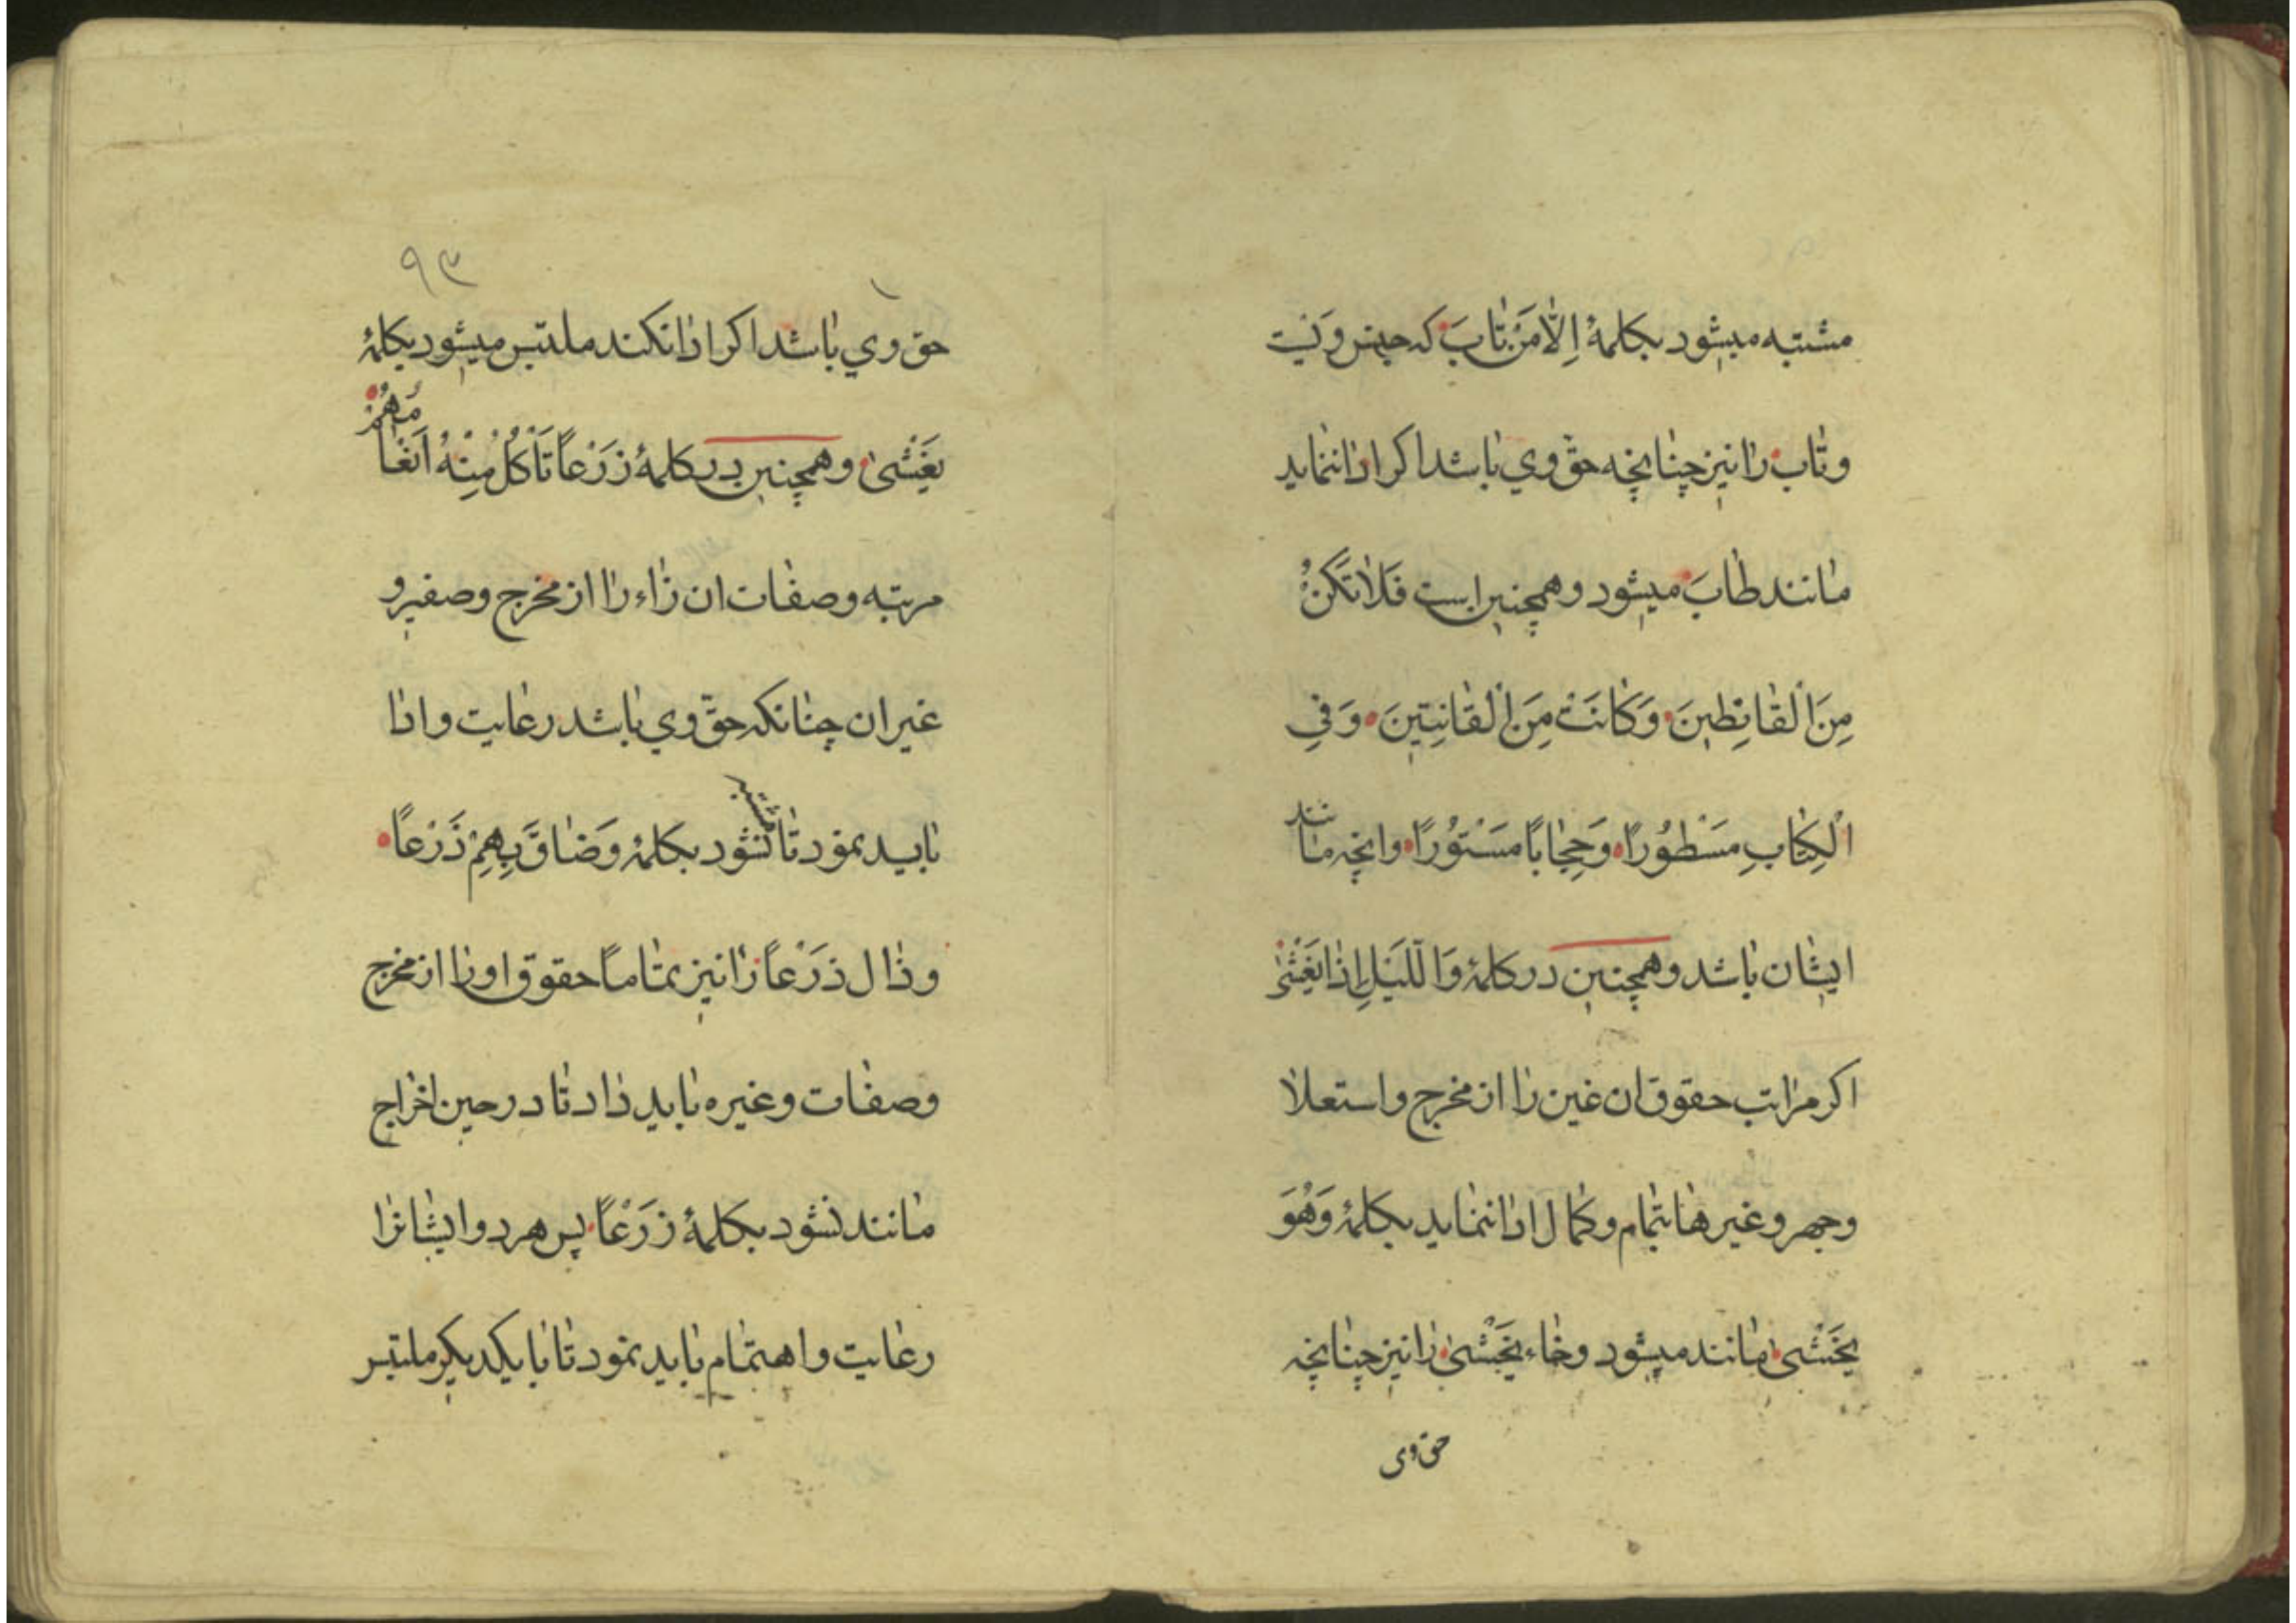 مشتبه میشود بکلمهٔ اِلّا مَنْ تٰابَ که
وتاب را نیز چنانچه حقّ وي باشد اکر ادا ننماید
مانند طٰابَ میشود وهمچنین است فَلٰا تَکُنْ
مِنَ الْقٰانِطٖینَ وَکٰانَتْ مِنَ الْقٰانِتِینَ وَفِي
الْکِتٰابِ مَسْطُورًا وَحِجٰابًا مَسْتُورًا وانچه مانند
ایشان باشد وهمچنین در کلمهٔ وَاللَّیْلِ اِذٰا یَغْشٰی
اکر مراتب حقوق ان غین را از مخرج واستعلا
وجهر وغیرها بتمام وکمال ادا ننماید بکلمهٔ وَهُوَ
یَخْشٰی مانند میشود وخاء یَخْشٰی را نیز چنانچه
حق وی
۹۳
حق وي باشد اکر ادا نکند ملتبس میشود بکلمهٔ
یَغْشٰی وهمچنین در کلمهٔ زَرْعاً تَأْکُلُ مِنْهُ اَنْعٰامُهُمْ
مرتبه وصفات ان زاء را از مخرج وصفیر و
غیر ان چنانکه حقّ وي باشد رعایت وادا
باید نمود تا نشود بکلمهٔ وَضٰاقَ بِهِمْ ذَرْعاً
وذال ذَرْعاً را نیز تماماً حقوق اورا از مخرج
وصفات وغیره باید داد تا در حین اخراج
مانند نشود بکلمهٔ زَرْعاً پس هر دو ایشانرا
رعایت واهتمام باید نمود تا با یکدیکر ملتبس